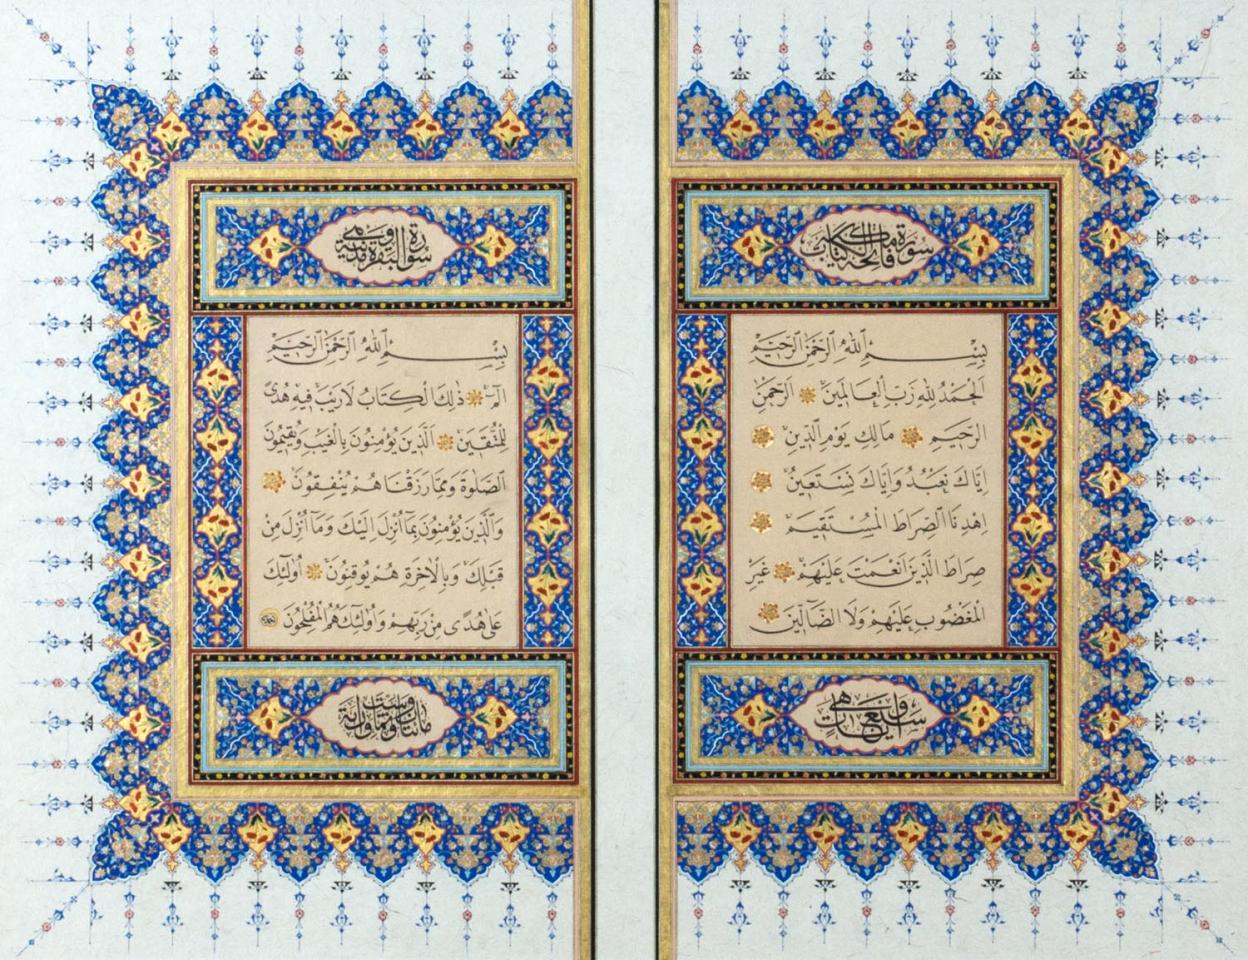 سورة فاتحة الكتاب
بِسْمِ اللّٰهِ الرَّحْمٰنِ الرَّحِيمِ
اَلْحَمْدُ لِلّٰهِ رَبِّ الْعَالَمِينَ اَلرَّحْمٰنِ
الرَّحِيمِ مَالِكِ يَوْمِ الدِّينِ
اِيَّاكَ نَعْبُدُ وَاِيَّاكَ نَسْتَعِينُ
اِهْدِنَا الصِّرَاطَ الْمُسْتَقِيمَ
صِرَاطَ الَّذِينَ اَنْعَمْتَ عَلَيْهِمْ غَيْرِ
الْمَغْضُوبِ عَلَيْهِمْ وَلَا الضَّالِّينَ
وهي سبع ايات
سورة البقرة مدنية وهي
بِسْمِ اللّٰهِ الرَّحْمٰنِ الرَّحِيمِ
الٓمٓ ذٰلِكَ الْكِتَابُ لَا رَيْبَ فِيهِ هُدًى
لِلْمُتَّقِينَ اَلَّذِينَ يُؤْمِنُونَ بِالْغَيْبِ وَيُقِيمُونَ
الصَّلٰوةَ وَمِمَّا رَزَقْنَاهُمْ يُنْفِقُونَ
وَالَّذِينَ يُؤْمِنُونَ بِمَٓا اُنْزِلَ اِلَيْكَ وَمَٓا اُنْزِلَ مِنْ
قَبْلِكَ وَبِالْاٰخِرَةِ هُمْ يُوقِنُونَ اُو۬لٰٓئِكَ
عَلٰى هُدًى مِنْ رَبِّهِمْ وَاُو۬لٰٓئِكَ هُمُ الْمُفْلِحُونَ
مائتان وست وثمانون اية